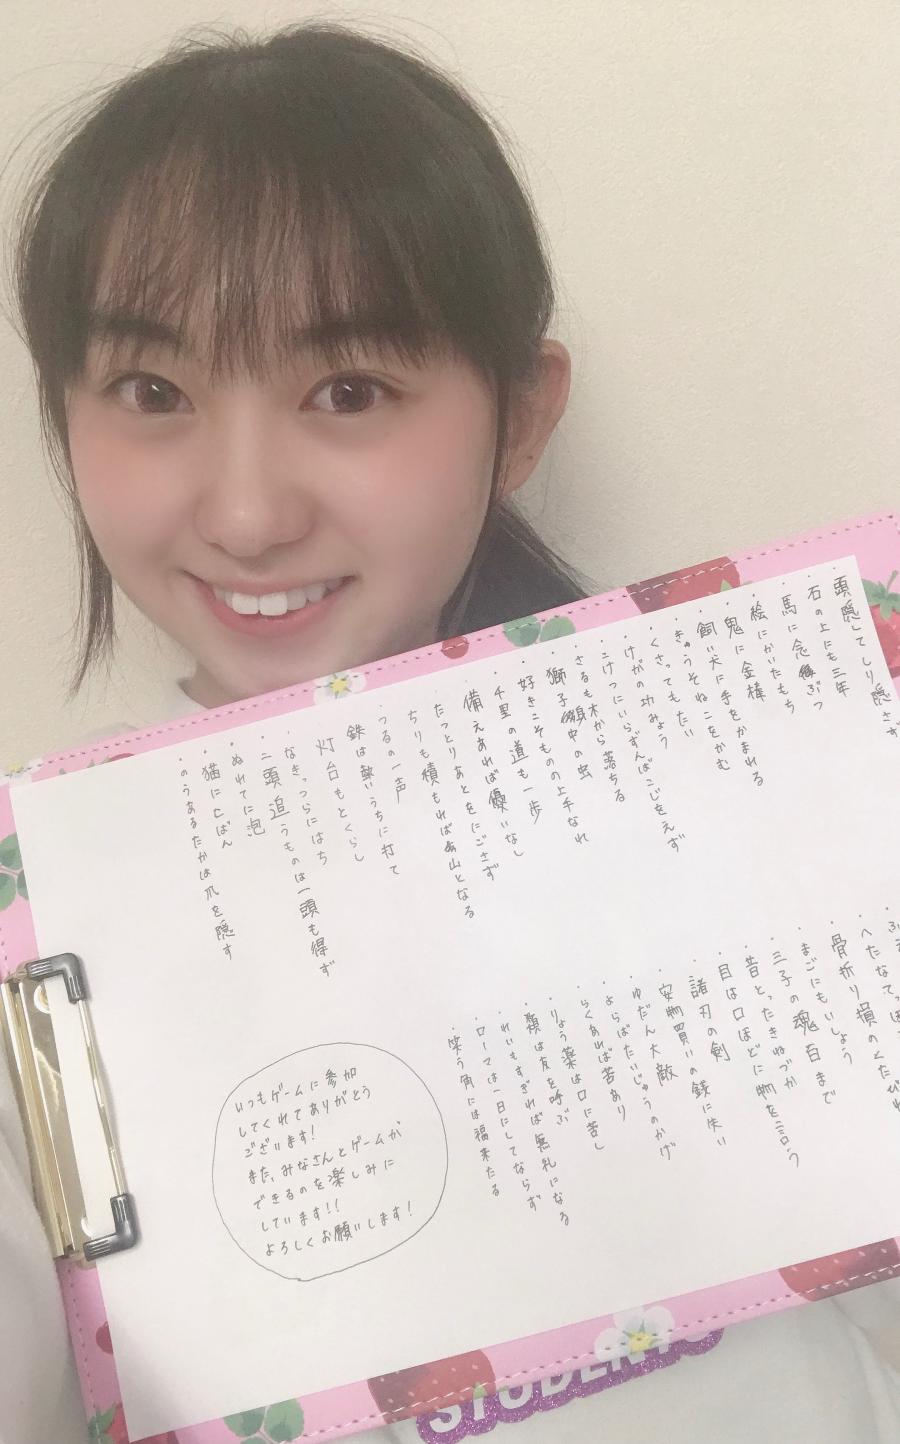 ・頭隠してしり隠さず
・石の上にも三年
・馬に念ぶつ
・絵にかいたもち
・鬼に金棒
・飼い犬に手をかまれる
・きゅうそねこをかむ
・くさってもたい
・けがの功みょう
・こけつにいらずんばこじをえず
・さるも木から落ちる
・獅子身中の虫
・好きこそものの上手なれ
・千里の道も一歩
・備えあれば優いなし
・たつとりあとをにごさず
・ちりも積もれば山となる
・つるの一声
・鉄は熱いうちに打て
・灯台もとくらし
・なきっつらにはち
・二頭追うものは一頭も得ず
・ぬれてに泡
・猫にこばん
・のうあるたかは爪を隠す
・へたなてっぽう
・骨折り損のくたびれ
・まごにもいしょう
・三子の魂百まで
・昔とったきねづか
・目は口ほどに物を言う
・諸刃の剣
・安物買いの銭に失い
・ゆだん大敵
・よらばたいじゅうのかげ
・らくあれば苦あり
・りょう薬は口に苦し
・類は友を呼ぶ
・れいもすぎれば無礼になる
・ローマは一日にしてならず
・笑う角には福来たる
いつもゲームに参加
してくれてありがとう
ございます!
また、みなさんとゲームが
できるのを楽しみに
しています!!
よろしくお願いします!
STUDENTS